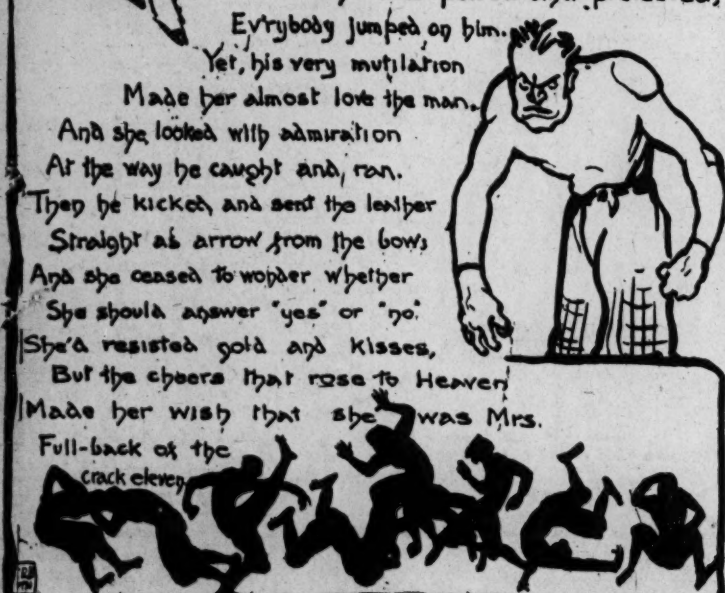 Ev'rybody jumped on him.
Yet, his very mutilation
Made her almost love the man.
And she looked with admiration
At the way he caught and, ran.
Then he kicked, and sent the leather
Straight as arrow from the bow;
And she ceased to wonder whether
She should answer "yes" or "no."
She'd resisted gold and kisses,
But the cheers that rose to Heaven
Made her wish that she was Mrs.
Full-back of the
crack eleven